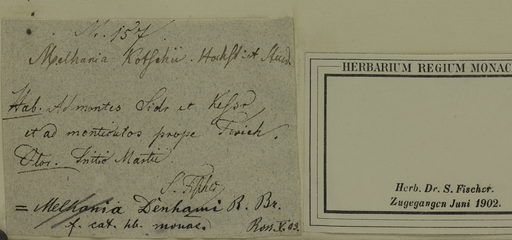 Nr. 157.
Melhania Kotschii. Hochst: et Steud.
Hab. Ad montes Sidr et Kessr
et ad monticulos prope Tirich.
Flor. Initio Martii
S. Fischer
= Melhania Denhami R. Br.
f. cat. hb. monac. Ren. V. 03.
HERBARIUM REGIUM MONAC
Herb. Dr. S. Fischer.
Zugegangen Juni 1902.